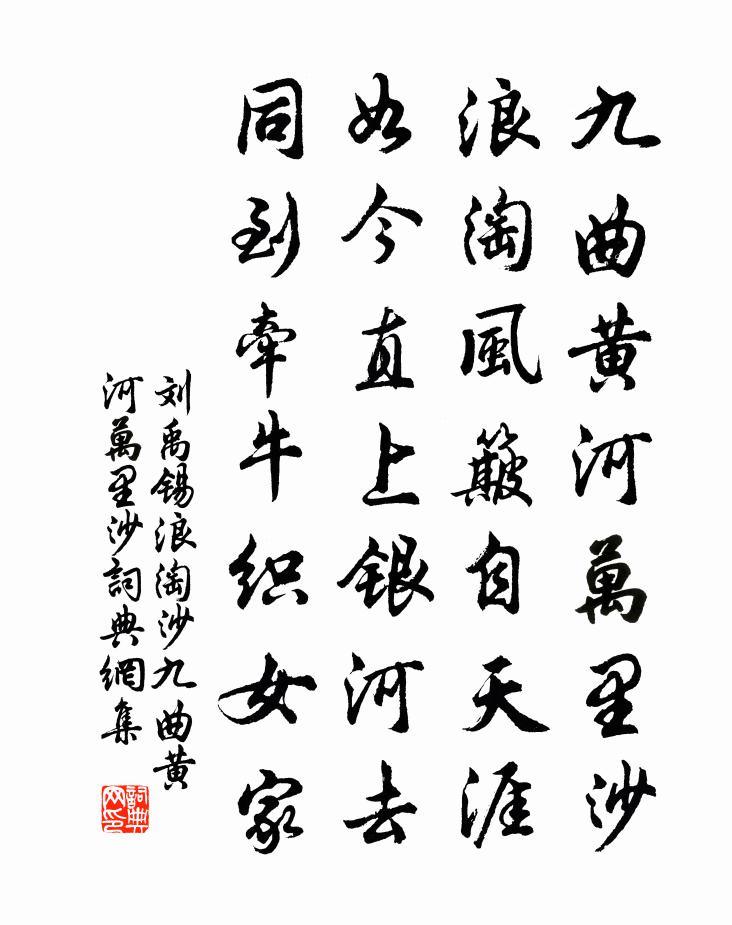 九曲黄河萬里沙
浪淘風簸自天涯
如今直上銀河去
同到牽牛织女家
刘禹锡浪淘沙九曲黄
河萬里沙詞典網集
詞典
网印